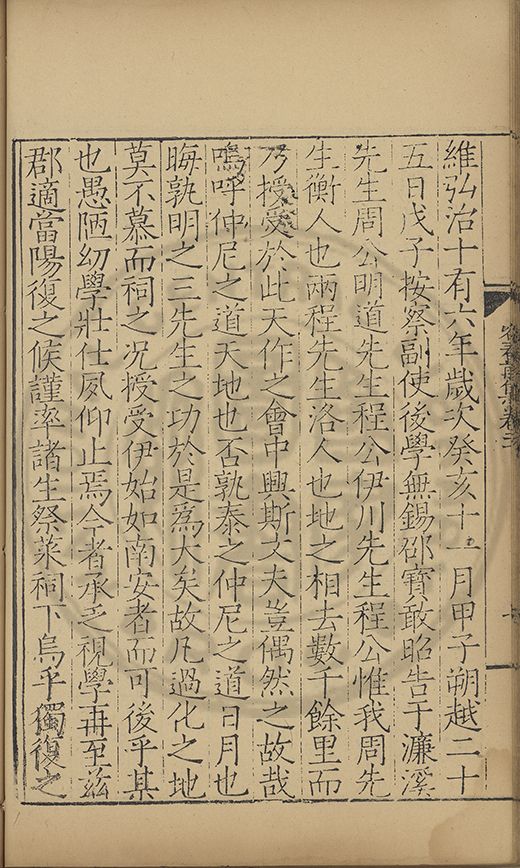 維弘治十有六年歲次癸亥十一月甲子朔越二十
五日戊子按察副使後學無錫邵寶敢昭告于濂溪
先生周公明道先生程公伊川先生程公惟我周先
生衡人也兩程先生洛人也地之相去數千餘里而
乃授受於此天作之會中興斯文夫豈偶然之故哉
嗚呼仲尼之道天地也否孰泰之仲尼之道日月也
晦孰明之三先生之功於是爲大矣故凡過化之地
莫不慕而祠之况授受伊始如南安者而可後乎某
也愚陋幼學壯仕夙仰止焉今者承乏視學再至兹
郡適當陽復之候謹率諸生祭菜祠下烏乎獨復之